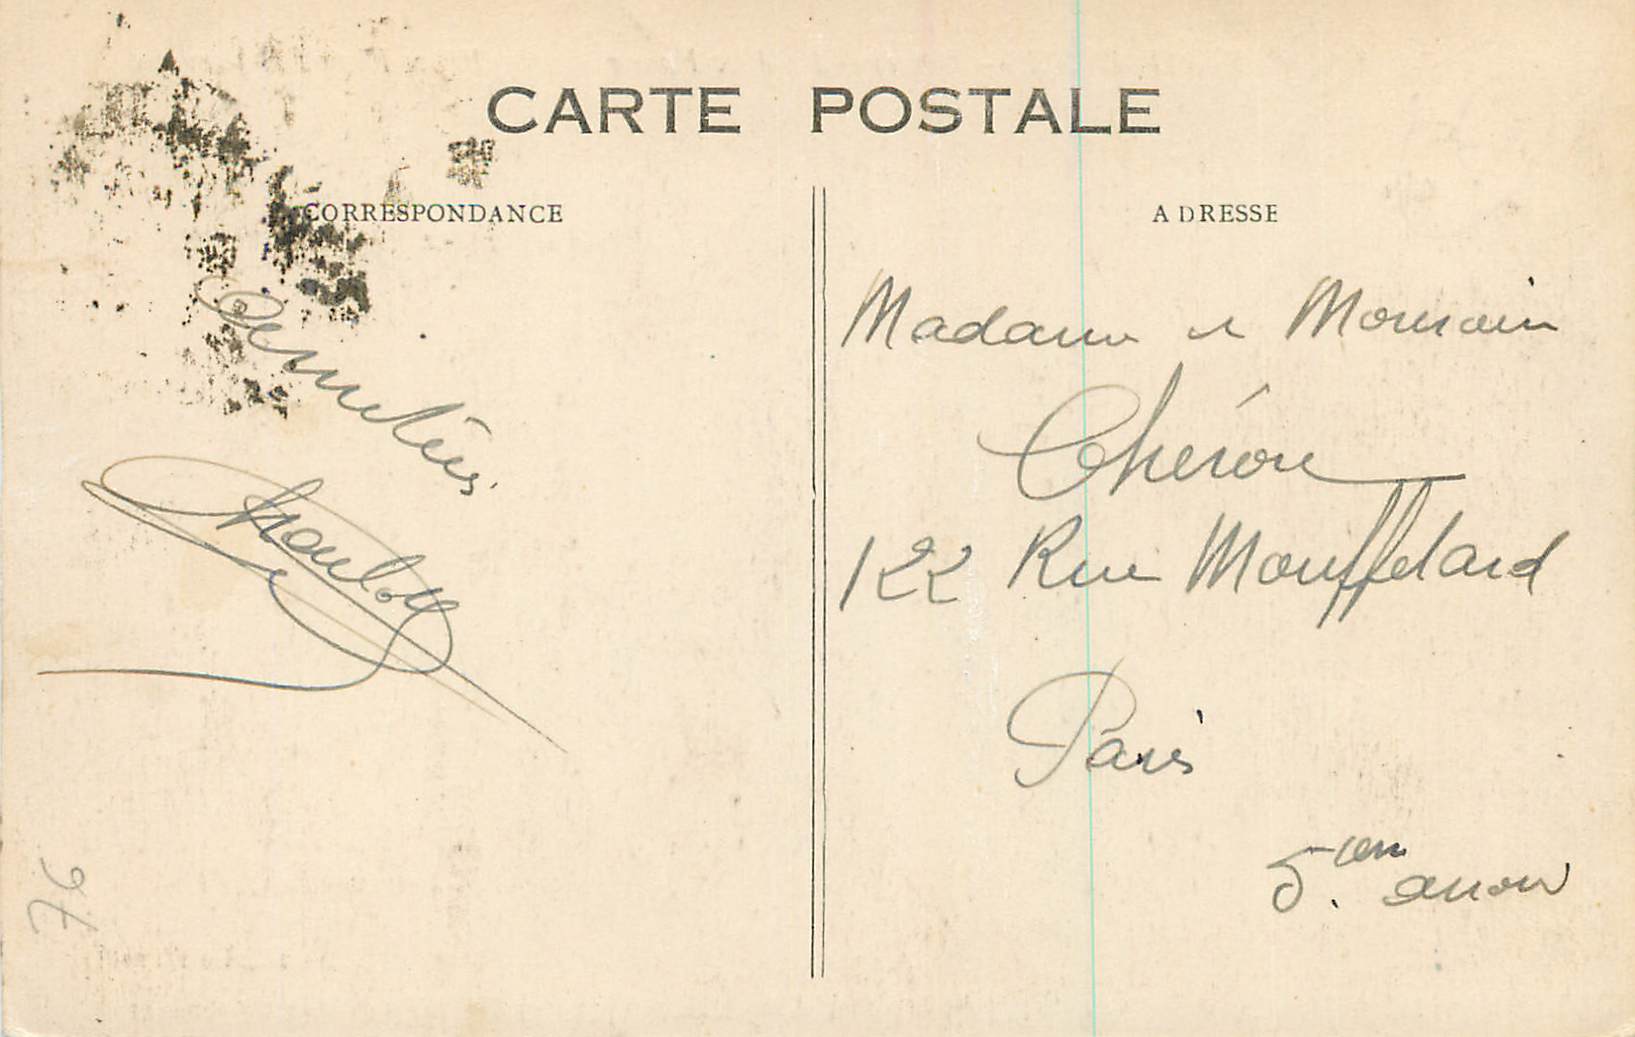 CARTE POSTALE
CORRESPONDANCE
Amitiés
ADRESSE
Madame et
Chéron
122 Rue Mouffetard
Paris
5.em arron
76